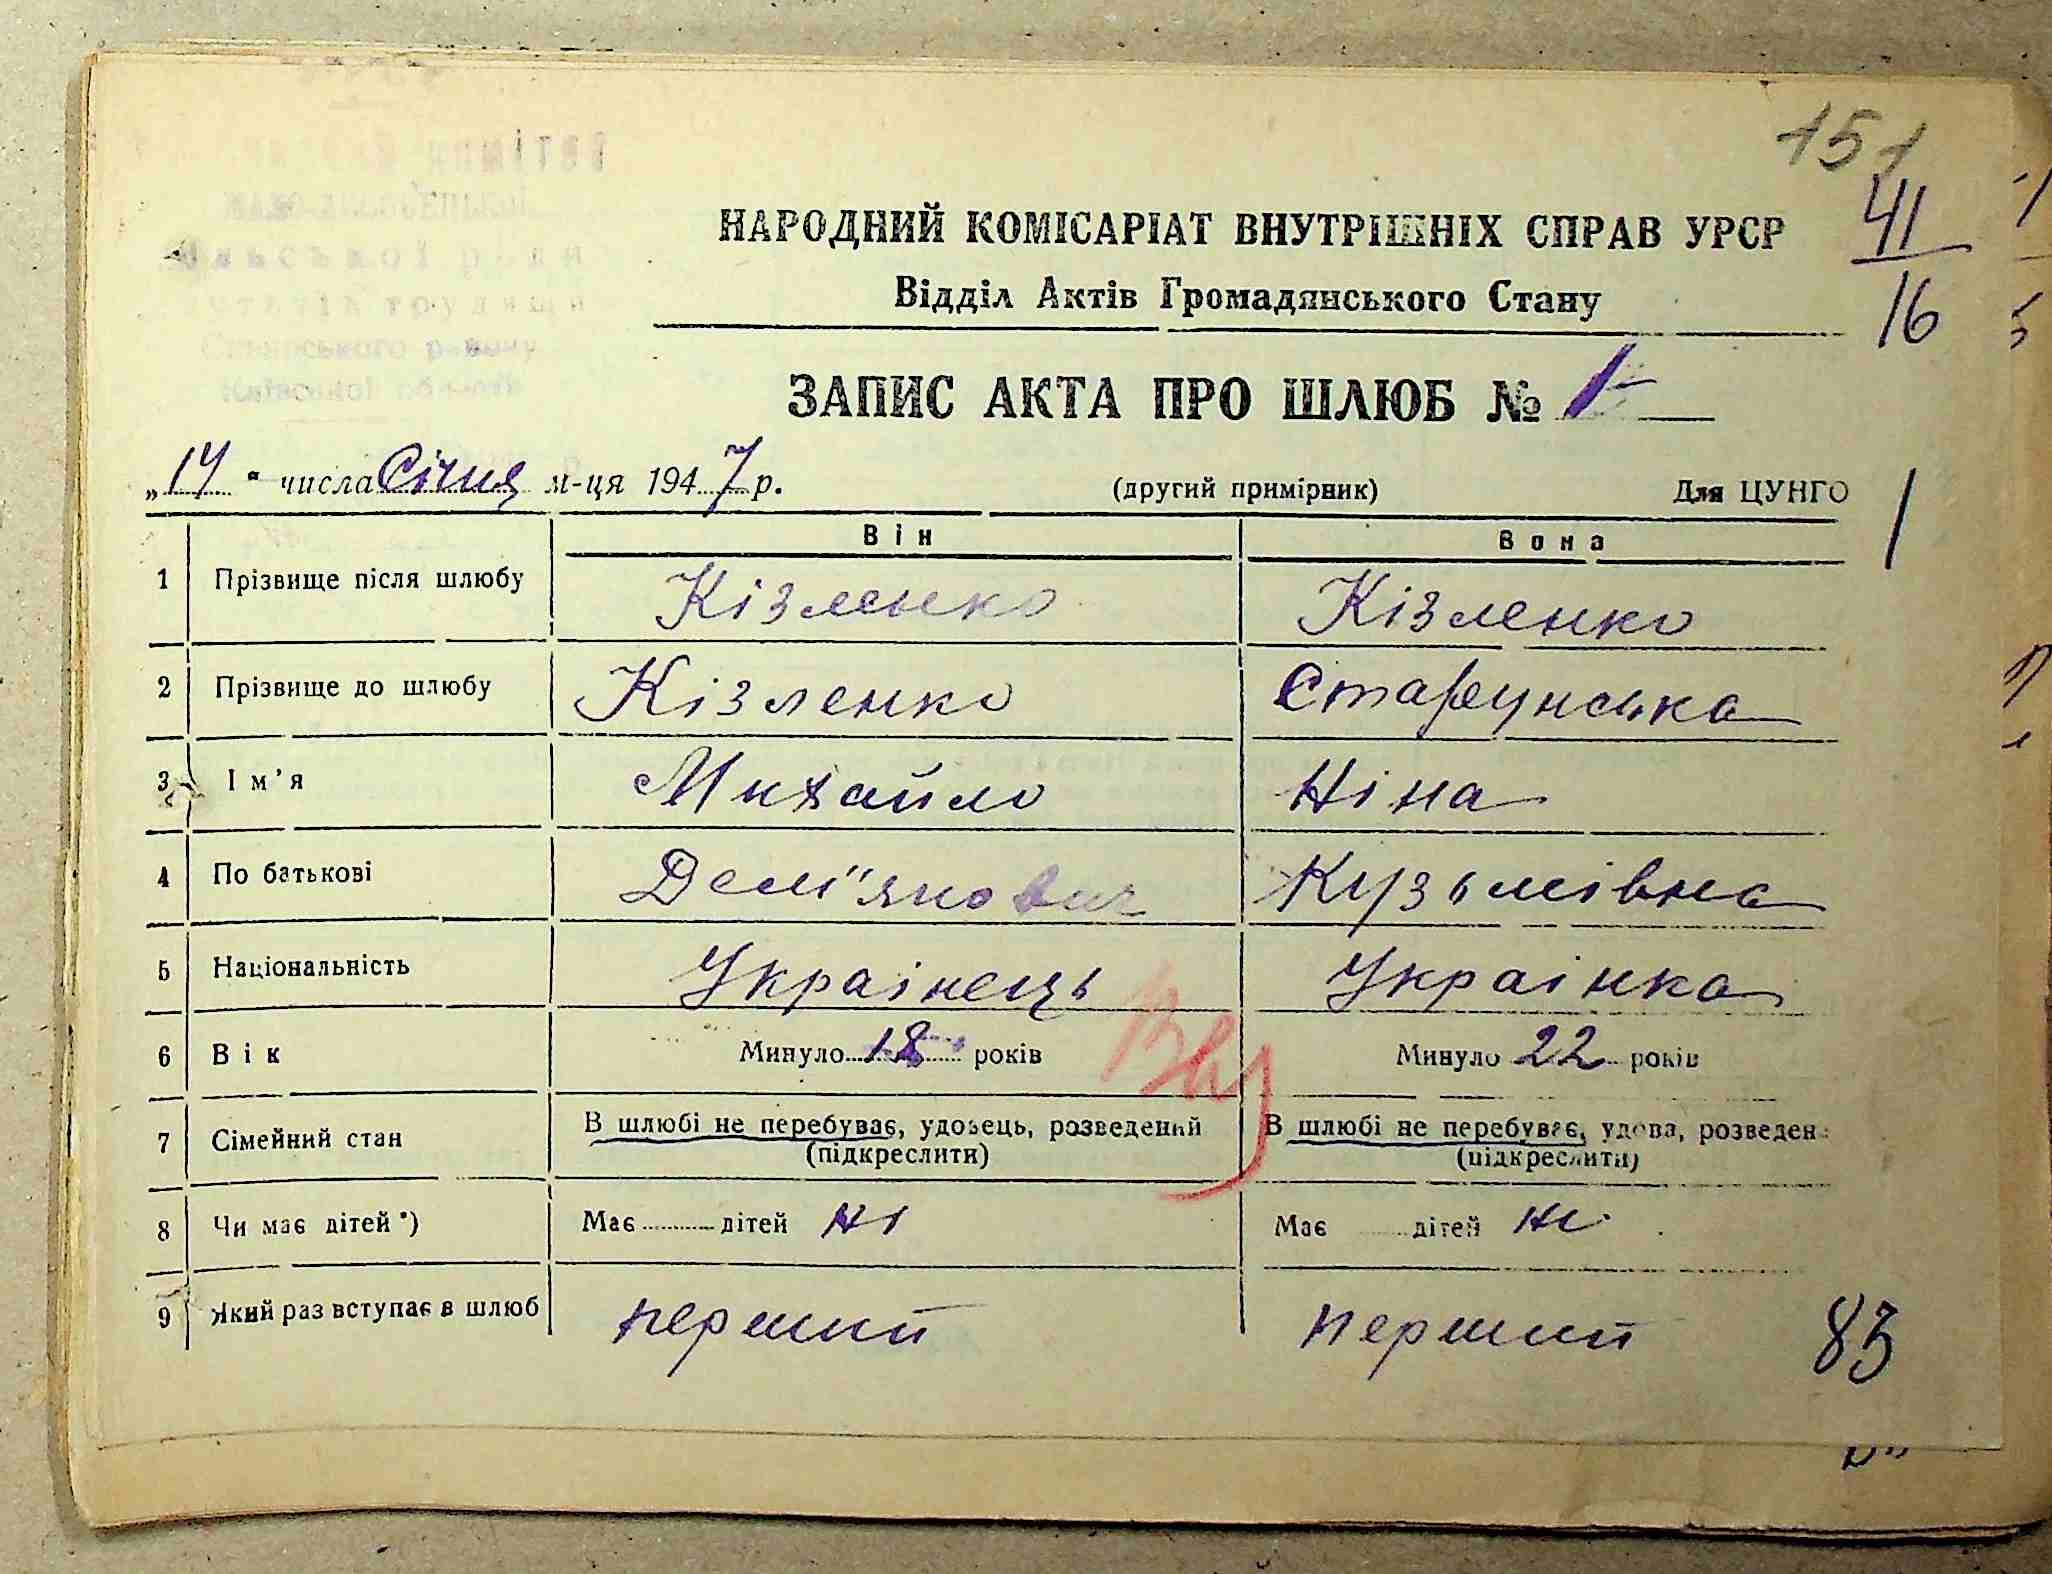 151
41
16
НАРОДНИЙ КОМІСАРІАТ ВНУТРІШНІХ СПРАВ УРСР
Відділ Актів Громадянського Стану
ЗАПИС АКТА ПРО ШЛЮБ № 1
„14" числа Січня м-ця 1947 р. (другий примірник) Для ЦУНГО
Він Вона
1 Прізвище після шлюбу Кізленко Кізленко
2 Прізвище до шлюбу Кізленко Старунська
3 Ім'я Михайло Ніна
4 По батькові Дем'янович Кузьмівна
5 Національність Українець Українка
6 Вік Минуло 18 років Минуло 22 років
7 Сімейний стан В шлюбі не перебуває, удовець, розведений В шлюбі не перебуває, удова, розведен
(підкреслити) (підкреслити)
8 Чи має дітей*) Має дітей ні Має дітей ні
9 Який раз вступає в шлюб перший перший
83